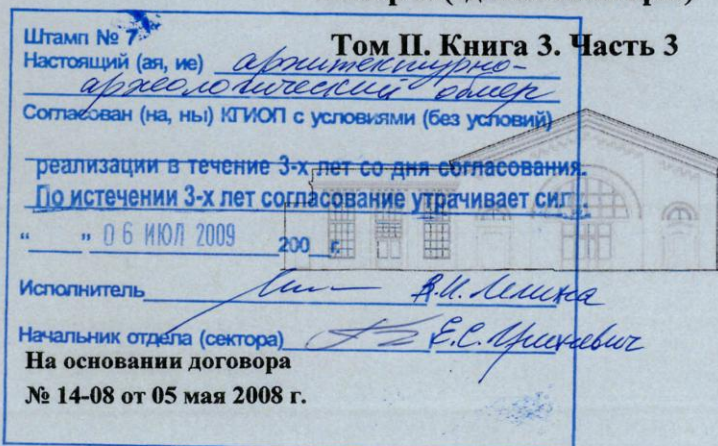 Том II. Книга 3. Часть 3
Штамп № 7
Настоящий (ая, ие) архитектурно-
археологический обмер
Согласован (на, ны) КГИОП с условиями (без условий)
реализации в течение 3-х лет со дня согласования.
По истечении 3-х лет согласование утрачивает сил
" " 06 ИЮЛ 2009 200 г.
Исполнитель
Начальник отдела (сектора) Е.С.
На основании договора
№ 14-08 от 05 мая 2008 г.